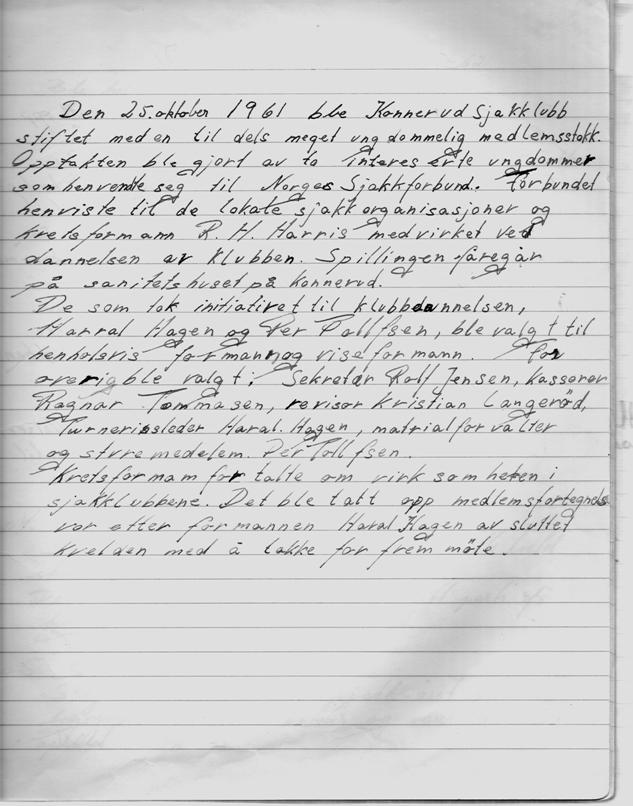 Den 25. oktober 1961 ble Konnerud Sjakklubb
stiftet med en til dels meget ungdommelig medlemsstokk.
Opptakten ble gjort av to interes erte ungdommer
som henvendte seg til Norges Sjakkforbund. Forbundet
henviste til de lokale sjakkorganisasjoner og
kretsformann R. H. Harris medvirket ved
dannelsen av klubben. Spillingen föregår
på sanitetshuset på Konnerud.
De som tok initiativet til klubbdannelsen,
Harral Hagen og Per Tollfsen, ble valgt til
henholsvis formann og vise formann. For
overig ble valgt: Sekretær Rolf Jensen, kasserer
Ragnar Tommasen, revisor Kristian Langeröd,
Turneringsleder Haral. Hagen, matrialforvalter
og styremedelem. Per Tollfsen.
Kretsformam fortalte om virksomheten i
sjakklubbene. Det ble tatt opp medlemsfortegnels
vor etter formannen Haral Hagen av sluttet
kvelden med å takke for frem möte.